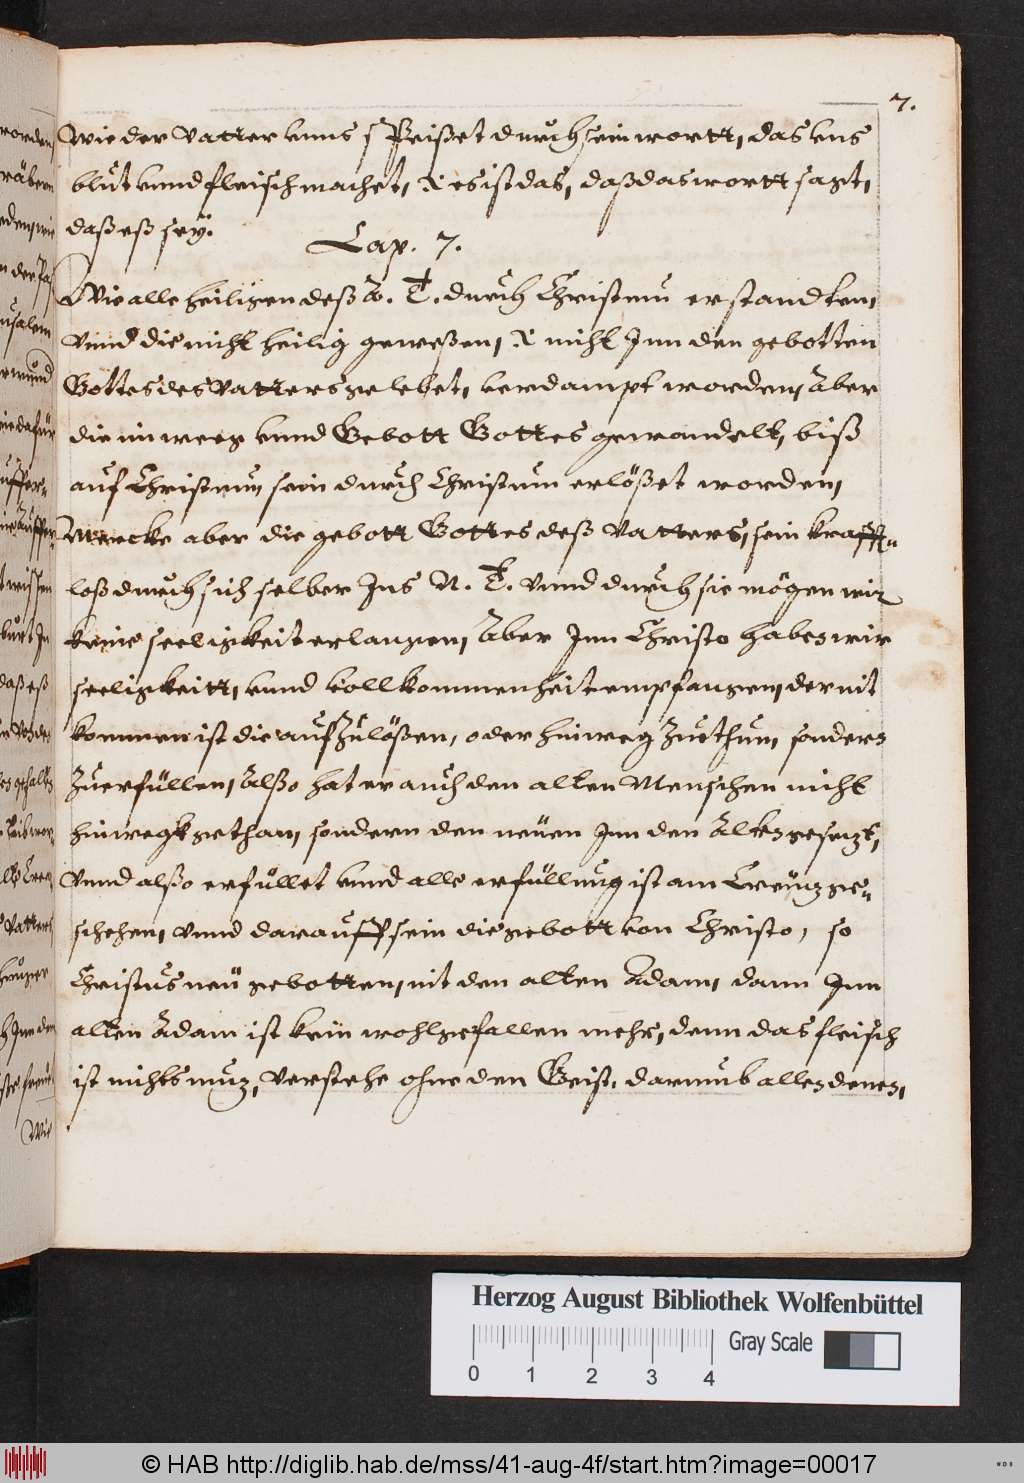 7.
Wie der Vatter vnns speißet durch sein wortt, das vns
blut vnnd fleisch machet, X es ist das, daß das wortt sagt,
daß eß seÿ.
Cap. 7.
Wie alle heiligen deß A. T. durch Christum erstandten,
Vnnd die nicht heilig geweßen, X nicht Inn den gebotten
Gottes des Vatters gelebet, verdampt worden, Aber
die im weeg vnnd Gebott Gottes gewandelt, biß
auf Christum, sein durch Christum erlößet worden,
Mercke aber die gebott Gottes deß Vatters, sein krafft-
loß durch sich selber Ins N. T. Vnnd durch sie mögen wir
keine seeligkeit erlangen, Aber Inn Christo haben wir
seeligkeitt, vnnd vollkommenheit empfangen, der nit
kommen ist die aufzulößen, oder hinweg zuthun, sondern
zuerfüllen, Alßo hat er auch den alten Menschen nicht
hinwegk gethan, sondern den neüen Inn den Alten gesezt,
Vnnd alßo erfüllet vnnd alle erfüllung ist am Creüz ge-
schehen, Vnnd darauff sein die gebott von Christo, so
Christus neü gebotten, nit den alten Adam, dann Inn
alten Adam ist kein wohlgefallen mehr, denn das fleisch
ist nichts nuz, Verstehe ohne den Geist, darumb allen denen,
Herzog August Bibliothek Wolfenbüttel
Gray Scale
0 1 2 3 4
© HAB http://diglib.hab.de/mss/41-aug-4f/start.htm?image=00017